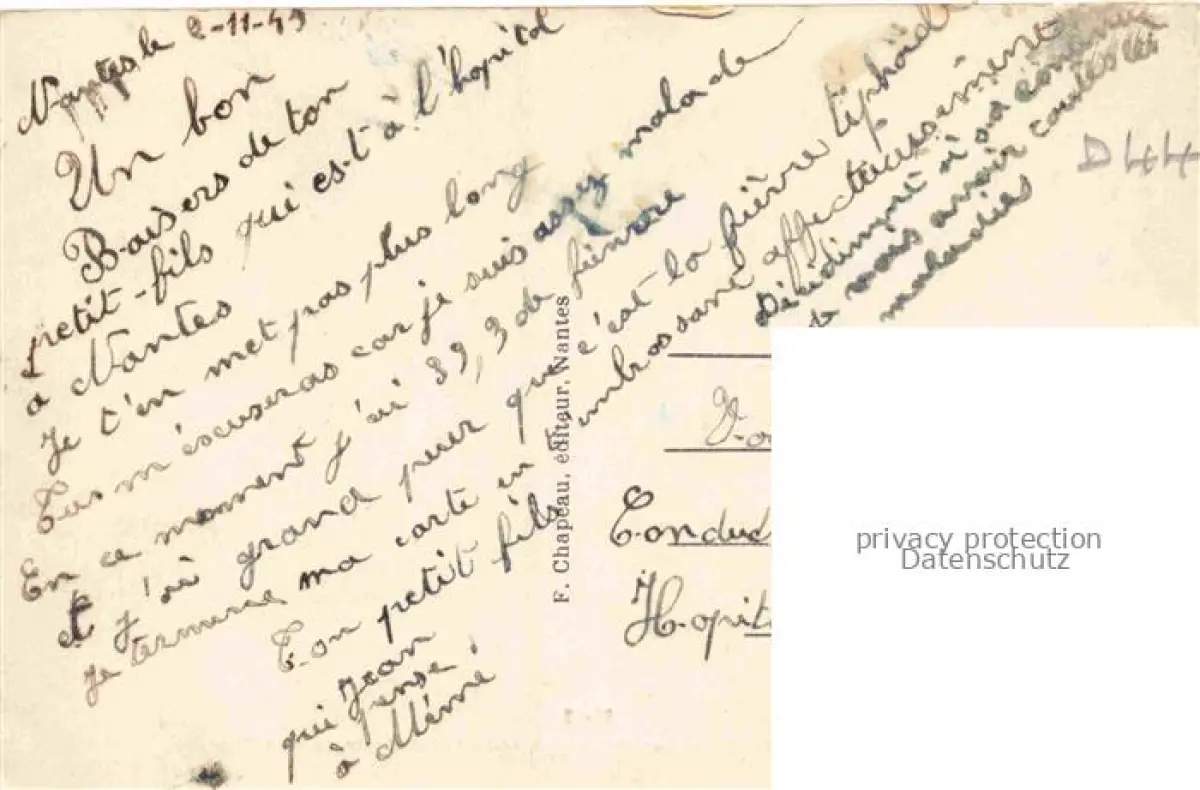 Nantes le 2-11-49
Un bon
Baisers de ton
petit-fils qui es-t à l'hopital
a Nantes
Je t'en met pas plus long
Tus m'éscuseras car je suis assez malade
En ce moment j'ai 39,3 de fièvre
et j'ai grand peur que c'est la fièvre tiphoïde
Je termine ma carte en t'embrassant affectueusement
Ton petit fils
Jean
qui pense
à Mémé
Décidimené si sa continue
je vais avoir toutes les
maladies
D44
F. Chapeau, éditeur, Nantes
Conduc
Hopit
privacy protection
Datenschutz